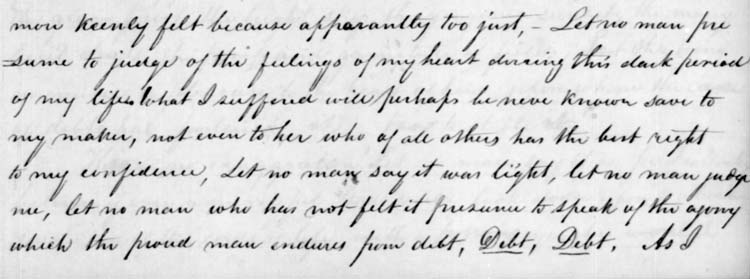 more keenly felt because apparantly too just, – Let no man pre
=sume to judge of the feelings of my heart during this dark period
of my life. What I suffered will perhaps be never known save to
my maker, not even to her who of all others has the best right
to my confidence, Let no man say it was light, let no man judge
me, let no man who has not felt it presume to speak of the agony
which the proud man endures from debt, Debt, Debt, As I